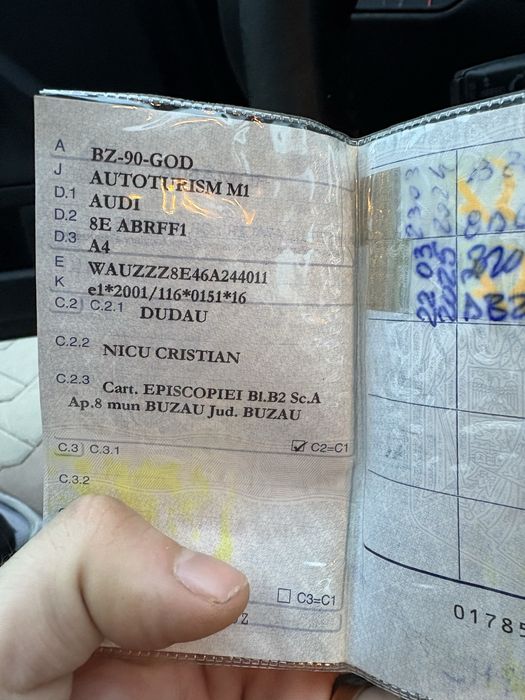 A BZ-90-GOD
J AUTOTURISM M1
D.1 AUDI
D.2 8E ABRFF1
D.3 A4
E WAUZZZ8E46A244011
K e1*2001/116*0151*16
C.2 C.2.1 DUDAU
C.2.2 NICU CRISTIAN
C.2.3 Cart. EPISCOPIEI Bl.B2 Sc.A
Ap.8 mun BUZAU Jud. BUZAU
C2=C1
C.3 C.3.1
C.3.2
C3=C1
23 03
2024
22 03
2025
0178